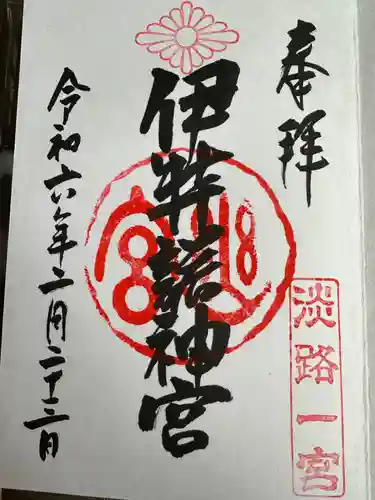 奉拝
淡路一宮
伊弉諾神宮
令和六年二月二十二日